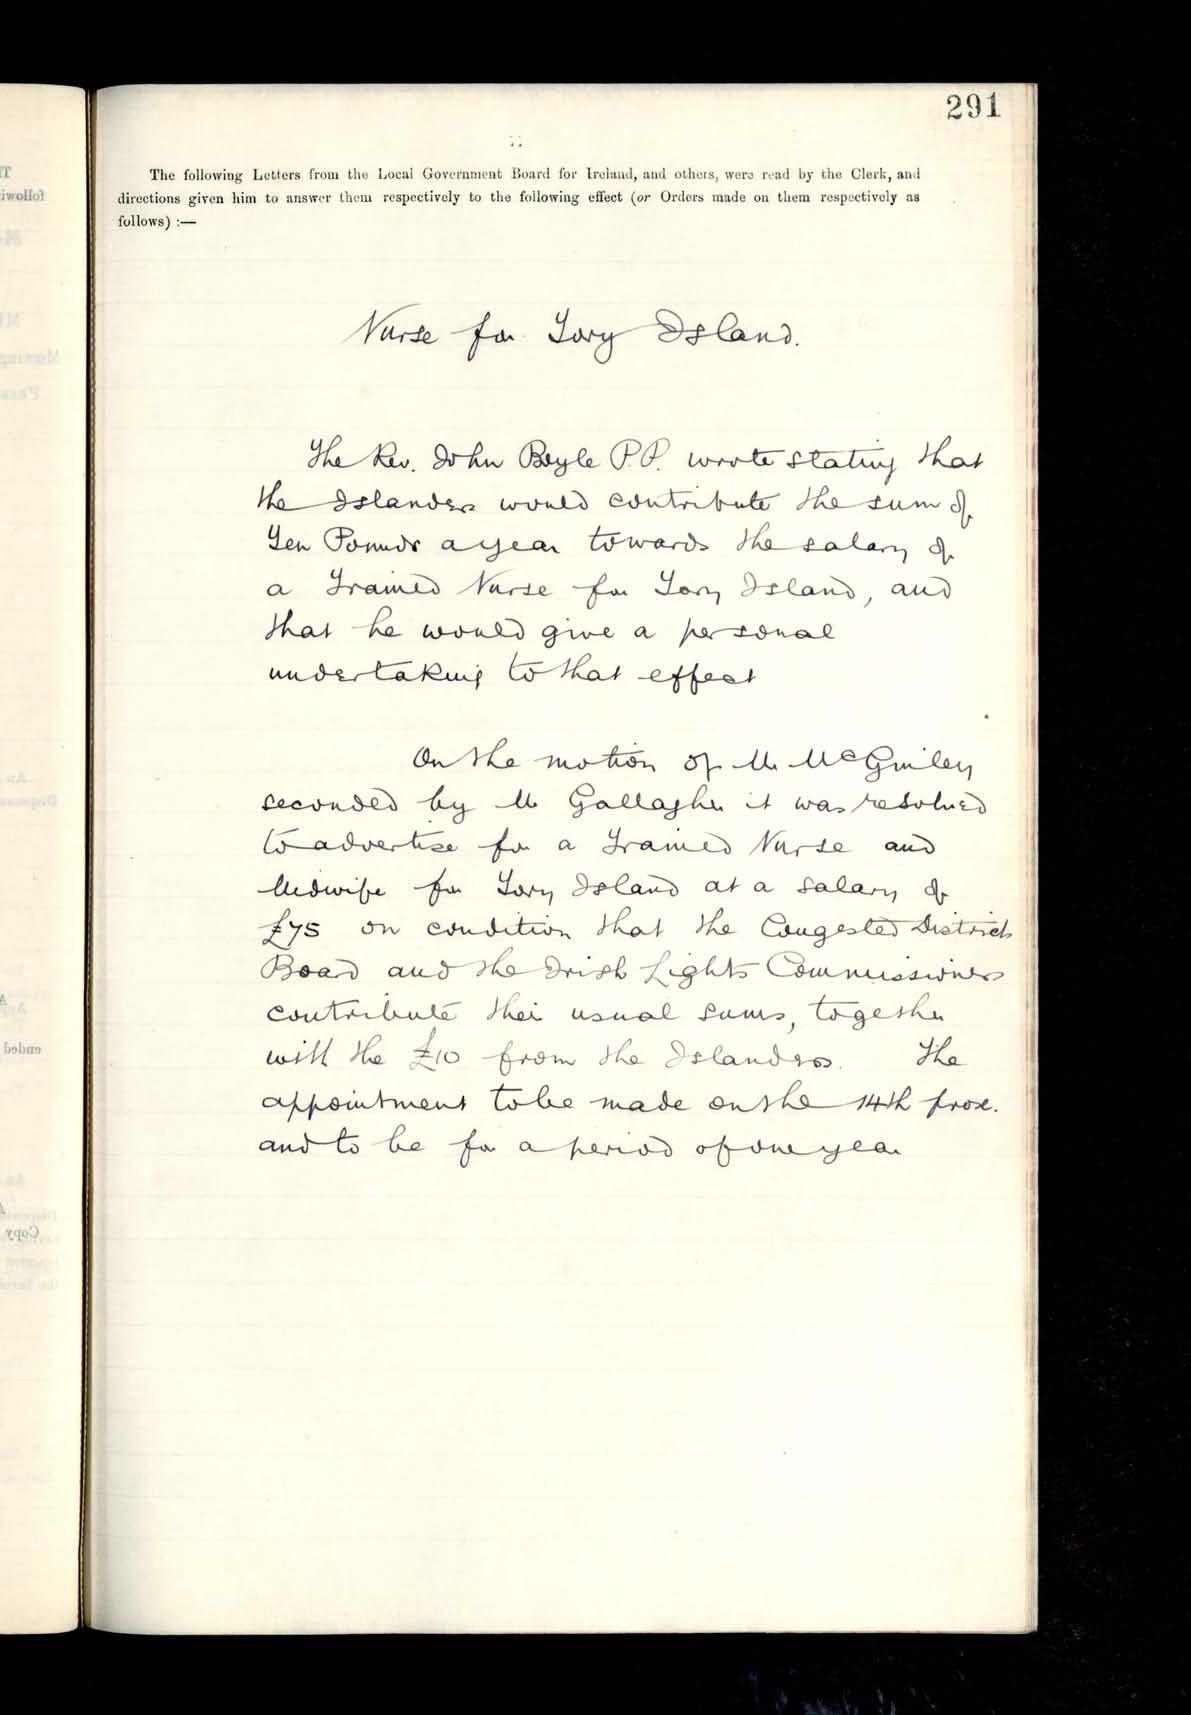 291
The following Letters from the Local Government Board for Ireland, and others, were read by the Clerk, and
directions given him to answer them respectively to the following effect (or Orders made on them respectively as
follows) :—
Nurse for Tory Island.
The Rev. John Boyle P.P. wrote stating that
the Islanders would contribute the sum of
Ten Pounds a year towards the salary of
a Trained Nurse for Tory Island, and
that he would give a personal
undertaking to that effect
On the motion of Mr McGinley
seconded by Mr Gallagher it was resolved
to advertise for a Trained Nurse and
Midwife for Tory Island at a salary of
£75 on condition that the Congested Districts
Board and the Irish Lights Commissioners
contribute their usual sums, together
with the £10 from the Islanders. The
appointment to be made on the 14th prox.
and to be for a period of one year